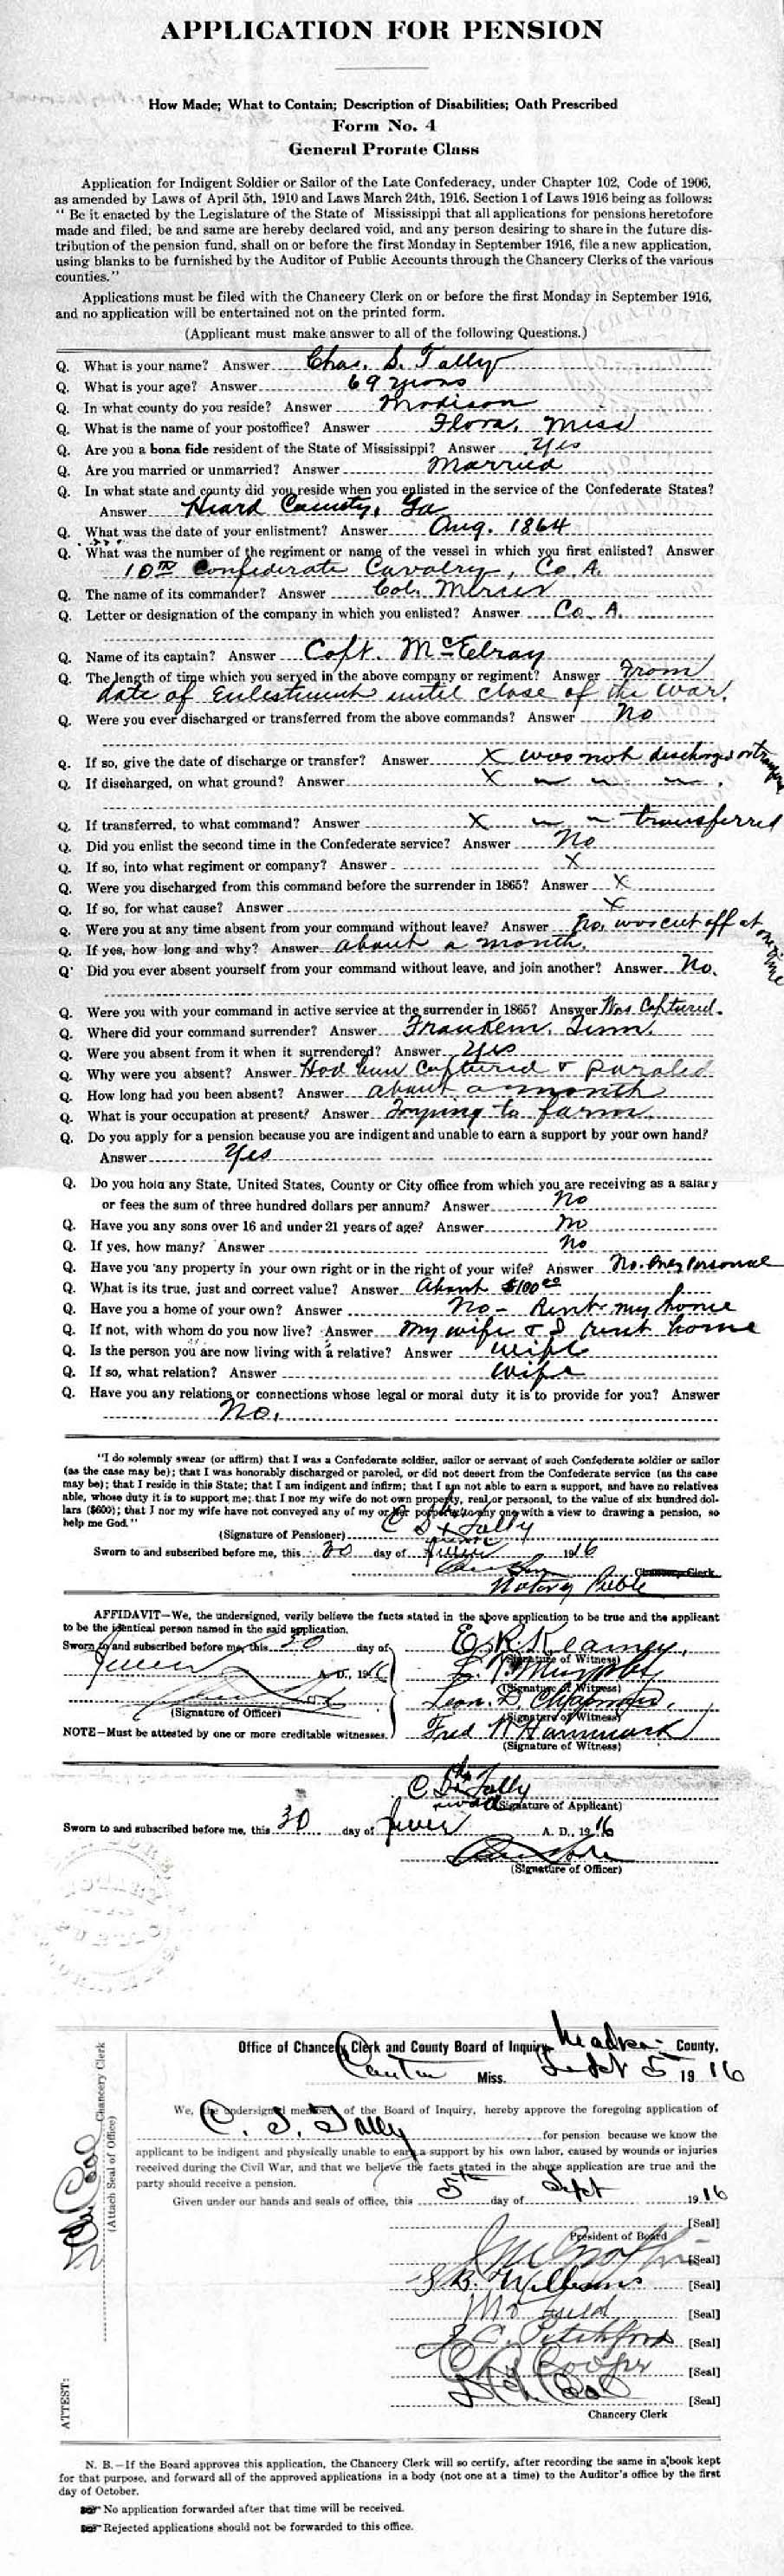 APPLICATION FOR PENSION
How Made; What to Contain; Description of Disabilities; Oath Prescribed
Form No. 4
General Prorate Class
Application for Indigent Soldier or Sailor of the Late Confederacy, under Chapter 102, Code of 1906,
as amended by Laws of April 5th, 1910 and Laws March 24th, 1916. Section 1 of Laws 1916 being as follows:
" Be it enacted by the Legislature of the State of Mississippi that all applications for pensions heretofore
made and filed, be and same are hereby declared void, and any person desiring to share in the future dis-
tribution of the pension fund, shall on or before the first Monday in September 1916, file a new application,
using blanks to be furnished by the Auditor of Public Accounts through the Chancery Clerks of the various
counties."
Applications must be filed with the Chancery Clerk on or before the first Monday in September 1916,
and no application will be entertained not on the printed form.
(Applicant must make answer to all of the following Questions.)
Q. What is your name? Answer Chas. S. Tally
Q. What is your age? Answer 69 years
Q. In what county do you reside? Answer Madison
Q. What is the name of your postoffice? Answer Flora, Miss
Q. Are you a bona fide resident of the State of Mississippi? Answer Yes
Q. Are you married or unmarried? Answer Married
Q. In what state and county did you reside when you enlisted in the service of the Confederate States?
Answer Heard County, Ga
Q. What was the date of your enlistment? Answer Aug. 1864
Q. What was the number of the regiment or name of the vessel in which you first enlisted? Answer
10th Confederate Cavalry, Co. A.
Q. The name of its commander? Answer Col.
Q. Letter or designation of the company in which you enlisted? Answer Co. A.
Q. Name of its captain? Answer Capt. McElray
Q. The length of time which you served in the above company or regiment? Answer From
date of Enlestment until close of the war.
Q. Were you ever discharged or transferred from the above commands? Answer No
Q. If so, give the date of discharge or transfer? Answer X was not discharged or
Q. If discharged, on what ground? Answer X " " " .
Q. If transferred, to what command? Answer X " " transferred
Q. Did you enlist the second time in the Confederate service? Answer No
Q. If so, into what regiment or company? Answer X
Q. Were you discharged from this command before the surrender in 1865? Answer X
Q. If so, for what cause? Answer X
Q. Were you at any time absent from your command without leave? Answer No, was cut off at one time
Q. If yes, how long and why? Answer about a month.
Q' Did you ever absent yourself from your command without leave, and join another? Answer No.
Q. Were you with your command in active service at the surrender in 1865? Answer Was Captured.
Q. Where did your command surrender? Answer
Q. Were you absent from it when it surrendered? Answer Yes
Q. Why were you absent? Answer Had been captured & paraled
Q. How long had you been absent? Answer about a month
Q. What is your occupation at present? Answer Trying to farm.
Q. Do you apply for a pension because you are indigent and unable to earn a support by your own hand?
Answer Yes
Q. Do you hold any State, United States, County or City office from which you are receiving as a salary
or fees the sum of three hundred dollars per annum? Answer No
Q. Have you any sons over 16 and under 21 years of age? Answer no
Q. If yes, how many? Answer No
Q. Have you any property in your own right or in the right of your wife? Answer No. Only Personal
Q. What is its true, just and correct value? Answer About $100 00
Q. Have you a home of your own? Answer No - Rent my home
Q. If not, with whom do you now live? Answer My wife & I rent home
Q. Is the person you are now living with a relative? Answer wife
Q. If so, what relation? Answer wife
Q. Have you any relations or connections whose legal or moral duty it is to provide for you? Answer
No.
"I do solemnly swear (or affirm) that I was a Confederate soldier, sailor or servant of such Confederate soldier or sailor
(as the case may be); that I was honorably discharged or paroled, or did not desert from the Confederate service (as the case
may be); that I reside in this State; that I am indigent and infirm; that I am not able to earn a support, and have no relatives
able, whose duty it is to support me; that I nor my wife do not own property, real or personal, to the value of six hundred dol-
lars ($600); that I nor my wife have not conveyed any of my or her property to any one with a view to drawing a pension, so
help me God."
(Signature of Pensioner) C S x Tally
Sworn to and subscribed before me, this 30 day of June 1916
Chancery Clerk
Notary Public
AFFIDAVIT—We, the undersigned, verily believe the facts stated in the above application to be true and the applicant
to be the identical person named in the said application.
Sworn to and subscribed before me, this 30 day of
June A. D., 1916
E. R. Kearney,
(Signature of Witness)
Murphy
(Signature of Witness)
Leon. D. Chapman,
(Signature of Witness)
(Signature of Officer)
NOTE—Must be attested by one or more creditable witnesses.
Fred N Hammack
(Signature of Witness)
C S x Tally
(Signature of Applicant)
Sworn to and subscribed before me, this 30 day of June A. D., 1916
(Signature of Officer)
Office of Chancery Clerk and County Board of Inquiry, County,
Canton Miss. Sept 5 1916
We, the undersigned members of the Board of Inquiry, hereby approve the foregoing application of
C. S. Tally for pension because we know the
applicant to be indigent and physically unable to earn a support by his own labor, caused by wounds or injuries
received during the Civil War, and that we believe the facts stated in the above application are true and the
party should receive a pension.
Given under our hands and seals of office, this 5th day of Sept 1916
[Seal]
President of Board
[Seal]
S B. Williams [Seal]
[Seal]
J C. Pitchford [Seal]
Cooper [Seal]
[Seal]
Chancery Clerk
ATTEST:
Chancery Clerk
(Attach Seal of Office)
N. B.—If the Board approves this application, the Chancery Clerk will so certify, after recording the same in a book kept
for that purpose, and forward all of the approved applications in a body (not one at a time) to the Auditor's office by the first
day of October.
No application forwarded after that time will be received.
Rejected applications should not be forwarded to this office.